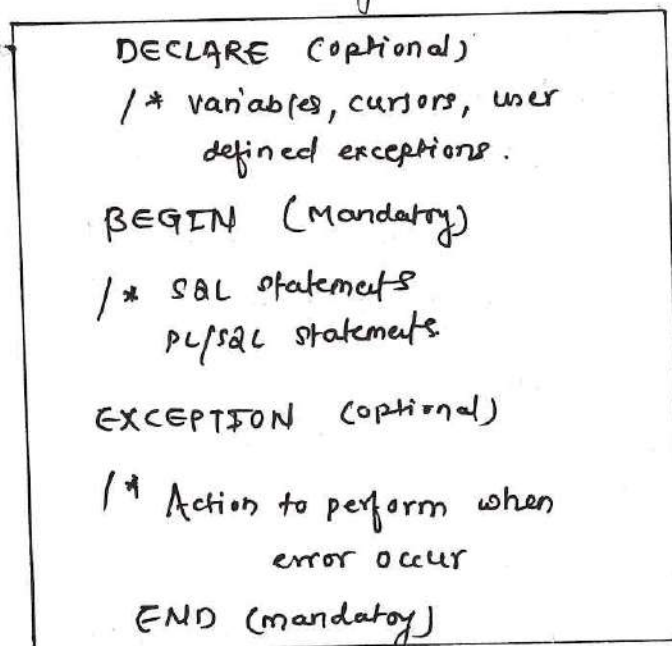 DECLARE (optional)
/* variables, cursors, user
defined exceptions.
BEGIN (Mandatory)
/* SQL statements
PL/SQL statements.
EXCEPTION (optional)
/* Action to perform when
error occur
END (mandatoy)